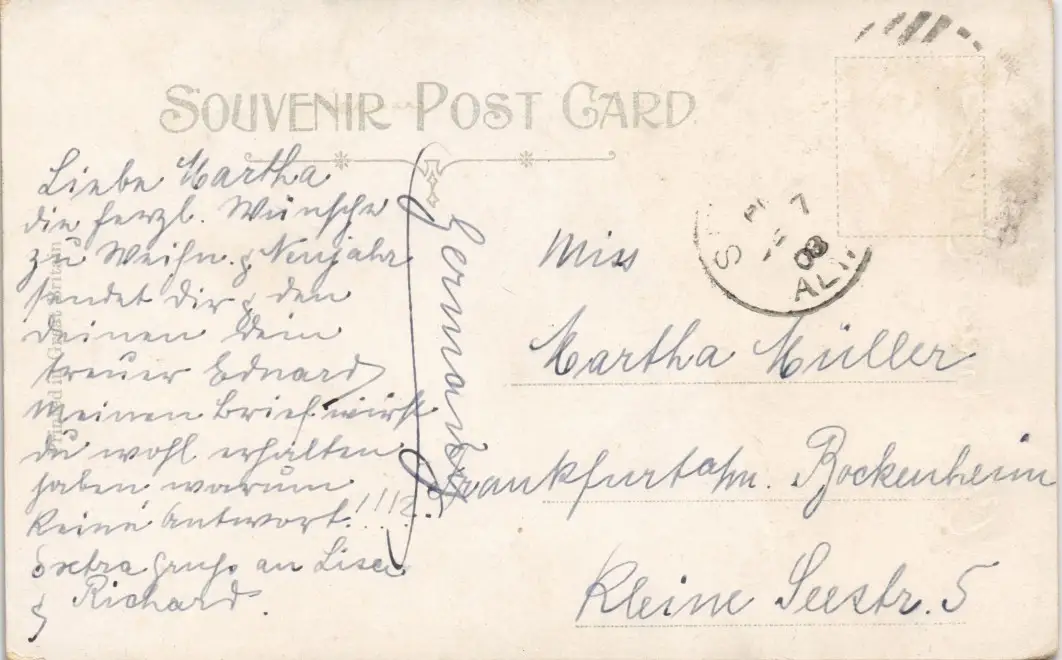 SOUVENIR POST CARD
Liebe Martha
die herzl. Wünsche
zu Weihn. & Neujahr
sendet dir & den
deinen dein
treuer Eduard
meinen Brief wirst
du wohl erhalten
haben, warum
keine Antwort.!!!?
Extra Gruß an Lisa
& Richard.
Printed in Great Britain
Germany
Miss
Martha Müller
Frankfurt a/m. Bockenheim
Kleine Seestr. 5
7
08